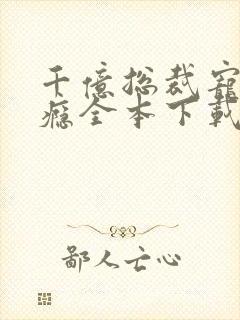 千億总裁寵
癮全本下載
鄙人亡心